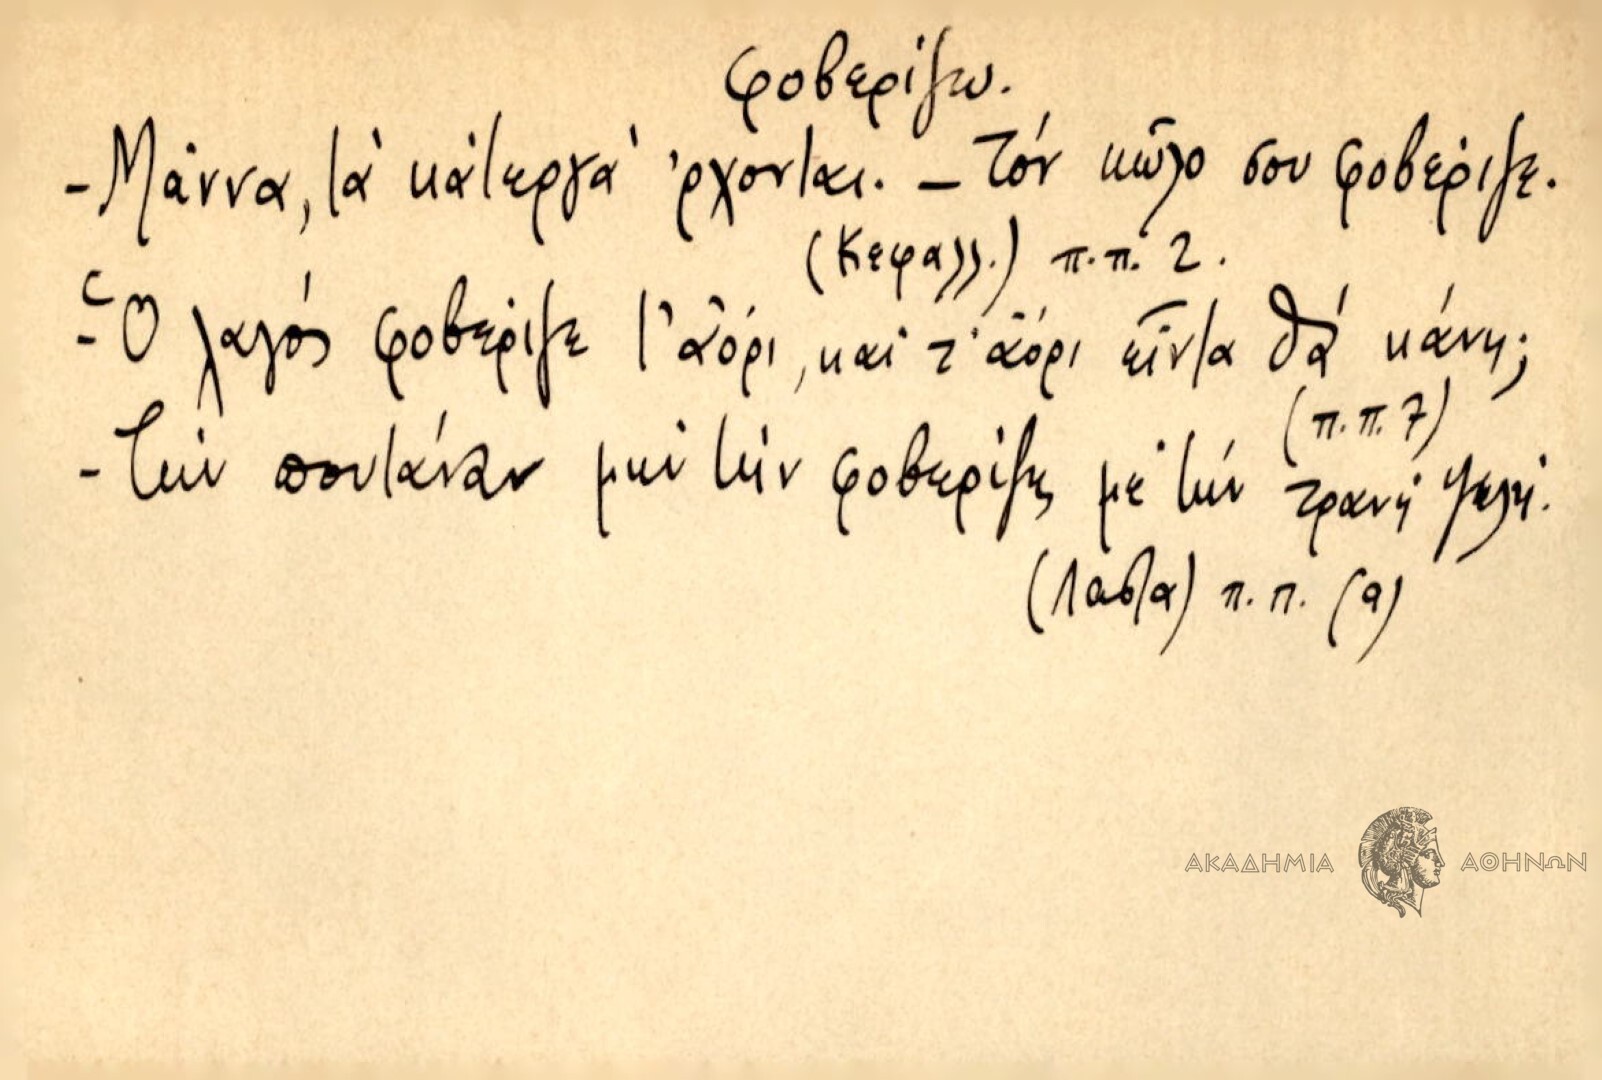 φοβερίζω.
- Μάννα, τὰ κάτεργα 'ρχονται. - Τόν κῶλο σου φοβέριζε.
(Κεφαλλ.) π.π. 2.
- Ὁ λαγός φοβέριζε τ' ἀόρι, καί τ' ἀόρι εἶντα θά κάνῃ;
(π.π. 7)
- Τὴν πουτάναν μήν τὴν φοβερίζῃς μέ τήν τρανή ψωλή.
(Λάστα) π. π. (α)
ΑΚΑΔΗΜΙΑ ΑΘΗΝΩΝ